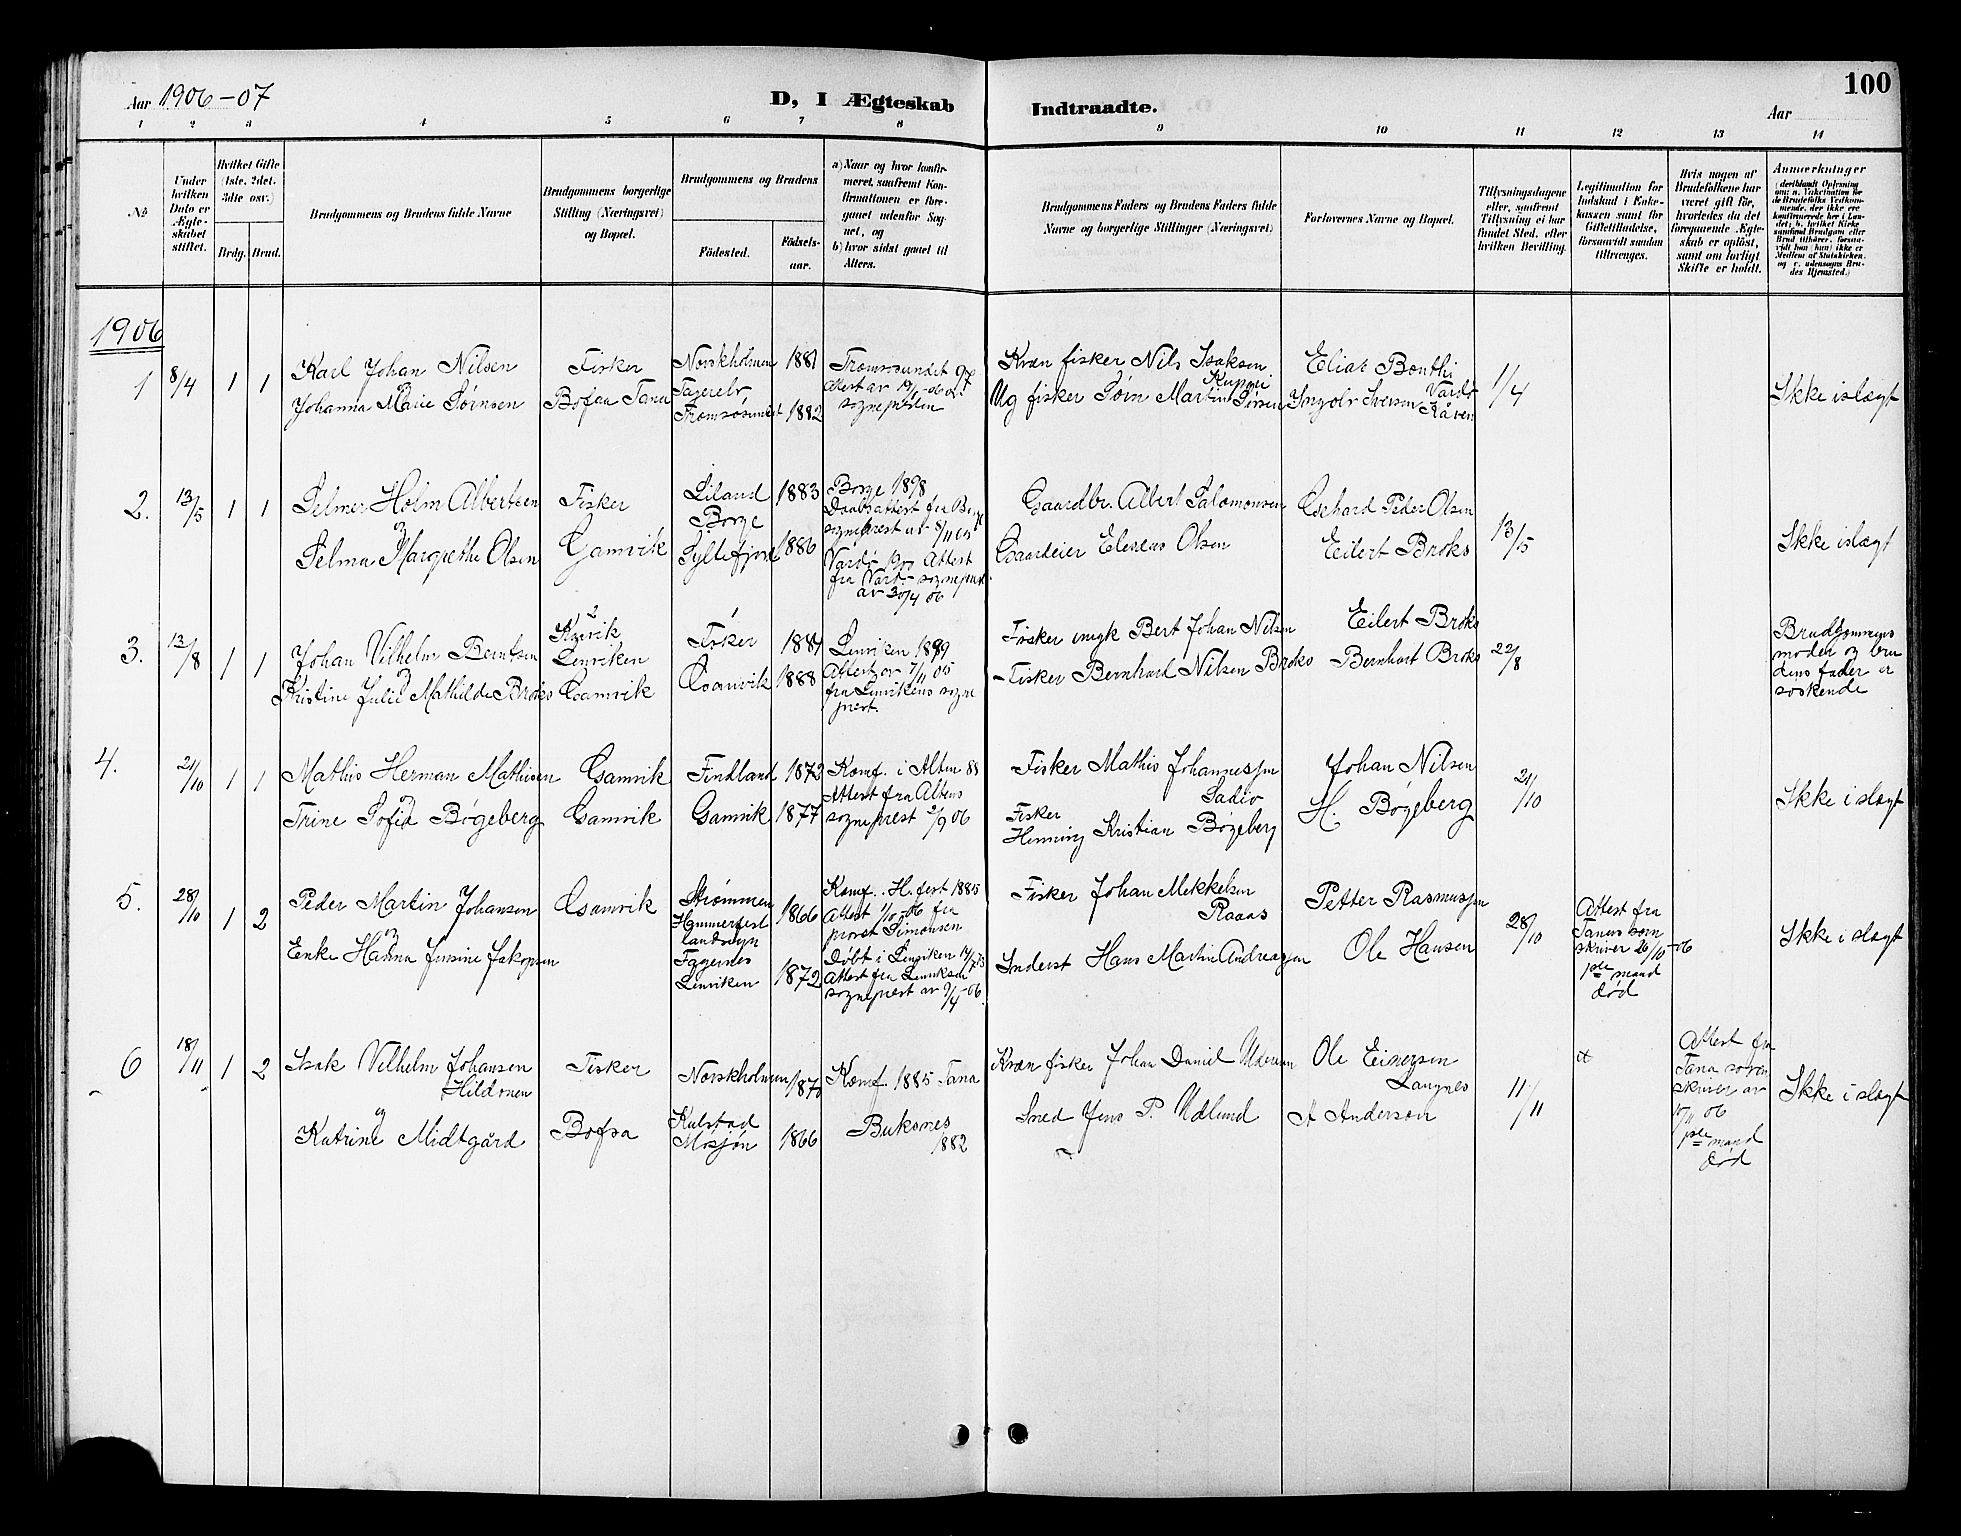 100
Aar 1906-07
D, I Ægteskab Indtraadte.
Aar
1 2 3 4 5 6 7 8 9 10 11 12 13 14
No
Under hvilken Dato er Ægteskabet stiftet.
Hvilket Gifte (1ste, 2det, 3die osv.)
Brdg. Brud.
Brudgommens og Brudens fulde Navne
Brudgommens borgerlige Stilling (Næringsvei) og Bopæl.
Brudgommens og Brudens
Födested.
Födsels-aar.
a) Naar og hvor konfirmeret, saafremt Konfirmationen er foregaaet udenfor Sognet, og
b) hvor sidst gaaet til Alters.
Brudgommens Faders og Brudens Faders fulde Navne og borgerlige Stillinger (Næringsvei)
Forlovernes Navne og Bopæl.
Tillysningsdagene eller, saafremt Tillysning ei har fundet Sted, efter hvilken Bevilling.
Legitimation for Indskud i Enkekassen samt for Giftetilladelse, forsaavidt saadan tiltrænges.
Hvis nogen af Brudefolkene har været gift før, hvorledes da det foregaaende Ægteskab er opløst, samt om lovligt Skifte er holdt.
Anmerkninger
1906
1 8/4 1 1
Karl Johan Nilsen
og
Johanna Marie Sørnsen
Fisker
Bofaa Tana
Norskholmen 1881
Fagerelv
Tromsøsundet 1882
Tromsøsundet 97
sognepresten
Kvæn fisker Nils Isaksen
Ug fisker Sørn Martin Sørsen
Elias Bonthi
Vardø
Ingolv Iversen
1/4
Ikke i slægt
2. 13/5 1 1
Selmer Holm Albertsen
og
Selma Margrethe Olsen
Fisker
Gamvik
Liland 1883
Borge
Syltefjord 1886
Borge 1898
Daabsattest fra Borge
sogneprest av 8/11 05
Attest
fra Vardø sogneprest
av 30/4 06
Gaardbr. Albert Salomonsen
Gaardeier Eleseus Olsen
Gerhard Peder Olsen
Eilert Broks
13/5
Ikke i slægt
3. 13/8 1 1
Johan Vilhelm Berntsen
og
Kristine Julie Mathilde Broks
Lenviken
Gamvik
Fisker 1884
Gamvik 1888
Lenviken 1899
Attest av 7/11 05
fra Lenvikens sogne
prest.
Fisker Bert Johan Nilsen
Fisker Bernhard Nilsen Broks
Eilert Broks
Bernhart Broks
22/8
Brudgommens
moder og bru
dens fader er
søskende
4. 21/10 1 1
Mathis Herman Mathisen
og
Trine Sofia Bøgeberg
Gamvik
Gamvik
Findland 1873
Gamvik 1877
Komf. i Alten 88
Attest fra Altens
sogneprest 2/9 06
Fisker Mathis Johannesen
Fisker
Henning Kristian Bøgeberg
Johan Nilsen
H. Bøgeberg
21/10
Ikke i slægt
5. 28/10 1 2
Peder Martin Johansen
og
Enke Hanna Jensine Jakopsen
Gamvik
Strømmen
Hammerfest 1866
landsogn
Fagernes
Lenviken 1872
Komf. H.fest 1885
Attest 1/10 06 fra
provst Simonsen
Døbt i Lenviken 14/7 73
Attest fra Lenviksen
sogneprest av 9/4 - 06.
Fisker Johan Mekkelsen
Raaas
Inderst Hans Martin Andreassen
Petter Rasmussen
Ole Hansen
28/10
Attest fra
Tanens soren
skriver 26/10-06
1ste mand
død
Ikke i slægt
6 18/11 1 2
Isak Vilhelm Johansen
Hildonen
og
Katrine Midtgård
Fisker
Bofsa
Norskholmen 1870
Kulstad
Mosjøn 1866
Komf. 1885 Tana
Buksnes
1882
Kvæn fisker Johan Daniel
Smed Jens P. Udlund
Ole Einersen
Langnes
A Anderson
11/11
Attest fra
Tana soren
skriver av
15/11 06
1ste mand
død
Ikke i slægt